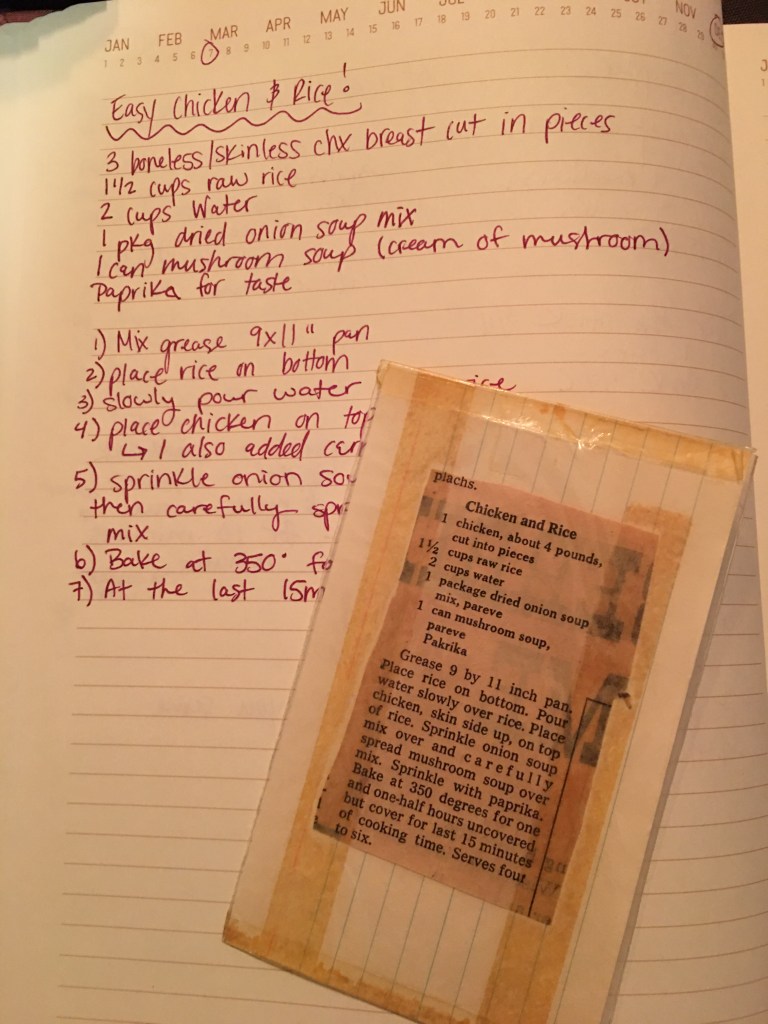 JAN FEB MAR APR MAY JUN NOV
1 2 3 4 5 6 7 8 9 10 11 12 13 14 15 16 17 18 19 20 21 22 23 24 25 26 27 28 29
Easy Chicken & Rice!
3 boneless/skinless chx breast cut in pieces
1 1/2 cups raw rice
2 cups Water
1 pkg dried onion soup mix
1 can mushroom soup (cream of mushroom)
Paprika for taste
1) Mix grease 9x11" pan
2) place rice on bottom
3) slowly pour water rice
4) place chicken on top
↳ I also added
5) sprinkle onion
then carefully
mix
6) Bake at 350°
7) At the last 15m
plachs.
Chicken and Rice
1 chicken, about 4 pounds,
cut into pieces
1½ cups raw rice
2 cups water
1 package dried onion soup
mix, pareve
1 can mushroom soup,
pareve
Pakrika
Grease 9 by 11 inch pan.
Place rice on bottom. Pour
water slowly over rice. Place
chicken, skin side up, on top
of rice. Sprinkle onion soup
mix over and carefully
spread mushroom soup over
mix. Sprinkle with paprika.
Bake at 350 degrees for one
and one-half hours uncovered
but cover for last 15 minutes
of cooking time. Serves four
to six.